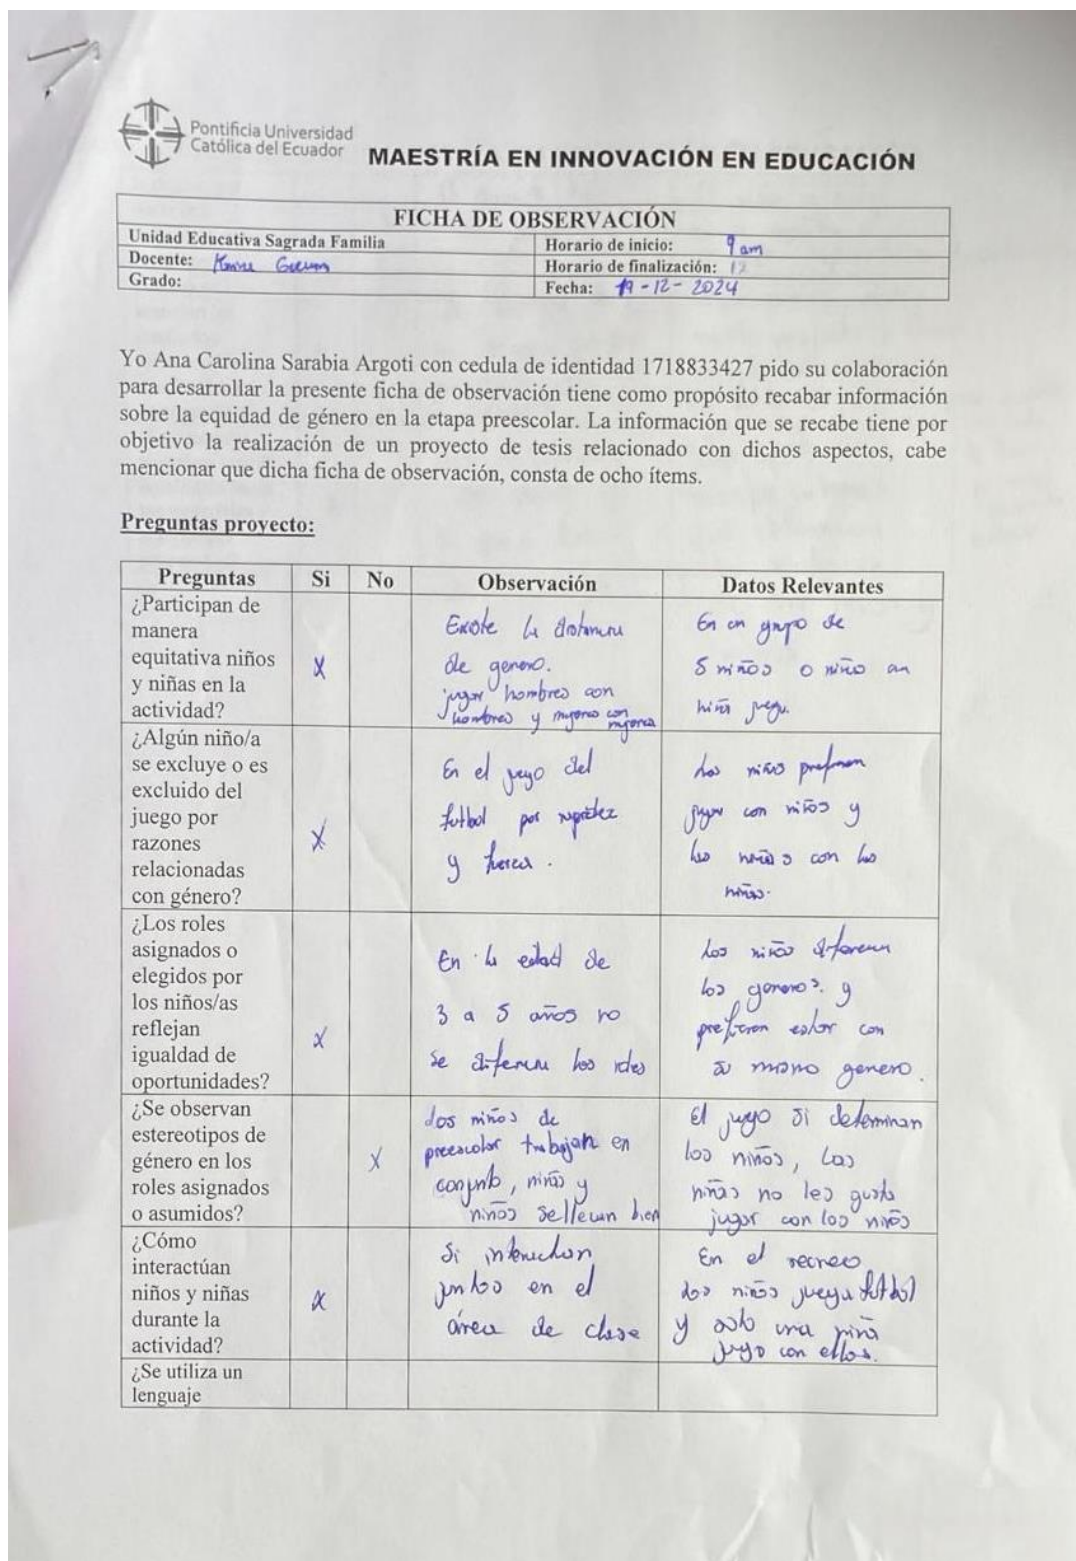 Pontificia Universidad
Católica del Ecuador
MAESTRÍA EN INNOVACIÓN EN EDUCACIÓN
FICHA DE OBSERVACIÓN
Unidad Educativa Sagrada Familia
Horario de inicio: 9 am
Docente:
Horario de finalización: 12
Grado:
Fecha: 19-12-2024
Yo Ana Carolina Sarabia Argoti con cedula de identidad 1718833427 pido su colaboración
para desarrollar la presente ficha de observación tiene como propósito recabar información
sobre la equidad de género en la etapa preescolar. La información que se recabe tiene por
objetivo la realización de un proyecto de tesis relacionado con dichos aspectos, cabe
mencionar que dicha ficha de observación, consta de ocho ítems.
Preguntas proyecto:
Preguntas Si No Observación Datos Relevantes
¿Participan de
manera
equitativa niños
y niñas en la
actividad?
X
Existe la
de genero.
jugar hombres con
hombres y mujeres con
mujeres
En un grupo de
5 niños o niño
niña juega.
¿Algún niño/a
se excluye o es
excluido del
juego por
razones
relacionadas
con género?
X
En el juego del
futbol por rapidez
y fuerza.
Los niños prefieren
jugar con niños y
las niñas con las
niñas.
¿Los roles
asignados o
elegidos por
los niños/as
reflejan
igualdad de
oportunidades?
X
En la edad de
3 a 5 años no
se diferencia los roles
Los niños diferencian
los generos. y
prefieren estar con
su mismo genero.
¿Se observan
estereotipos de
género en los
roles asignados
o asumidos?
X
Los niños de
preescolar trabajan en
conjunto, niñas y
niños se llevan bien
El juego si determinan
los niños, Las
niñas no les gusta
jugar con los niños
¿Cómo
interactúan
niños y niñas
durante la
actividad?
X
Si interactuan
juntos en el
área de clase
En el recreo
los niños juega futbol
y solo una niña
jugo con ellos.
¿Se utiliza un
lenguaje